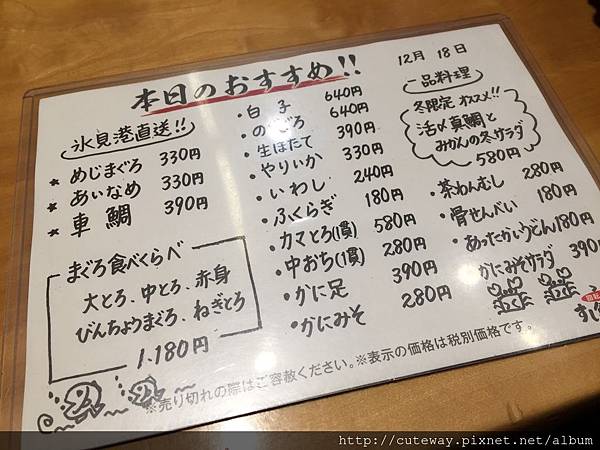 本日のおすすめ!!
12月 18日
氷見港直送!!
★ めじまぐろ 330円
★ あいなめ 330円
★ 車鯛 390円
まぐろ食べくらべ
大とろ、中とろ、赤身
びんちょうまぐろ、ねぎとろ
1.180円
・白子 640円
・のどぐろ 640円
・生ほたて 390円
・やりいか 330円
・いわし 240円
・ふくらぎ 180円
・カマとろ(1貫) 580円
・中おち(1貫) 280円
・かに足 390円
・かにみそ 280円
一品料理
冬限定 オススメ!!
活〆真鯛と
みかんの冬サラダ
580円
・茶わんむし 280円
・骨せんべい 180円
・あったかいうどん 180円
・かにみそサラダ 390円
※売り切れの際はご容赦ください。※表示の価格は税別価格です。
http://cuteway.pixnet.net/album